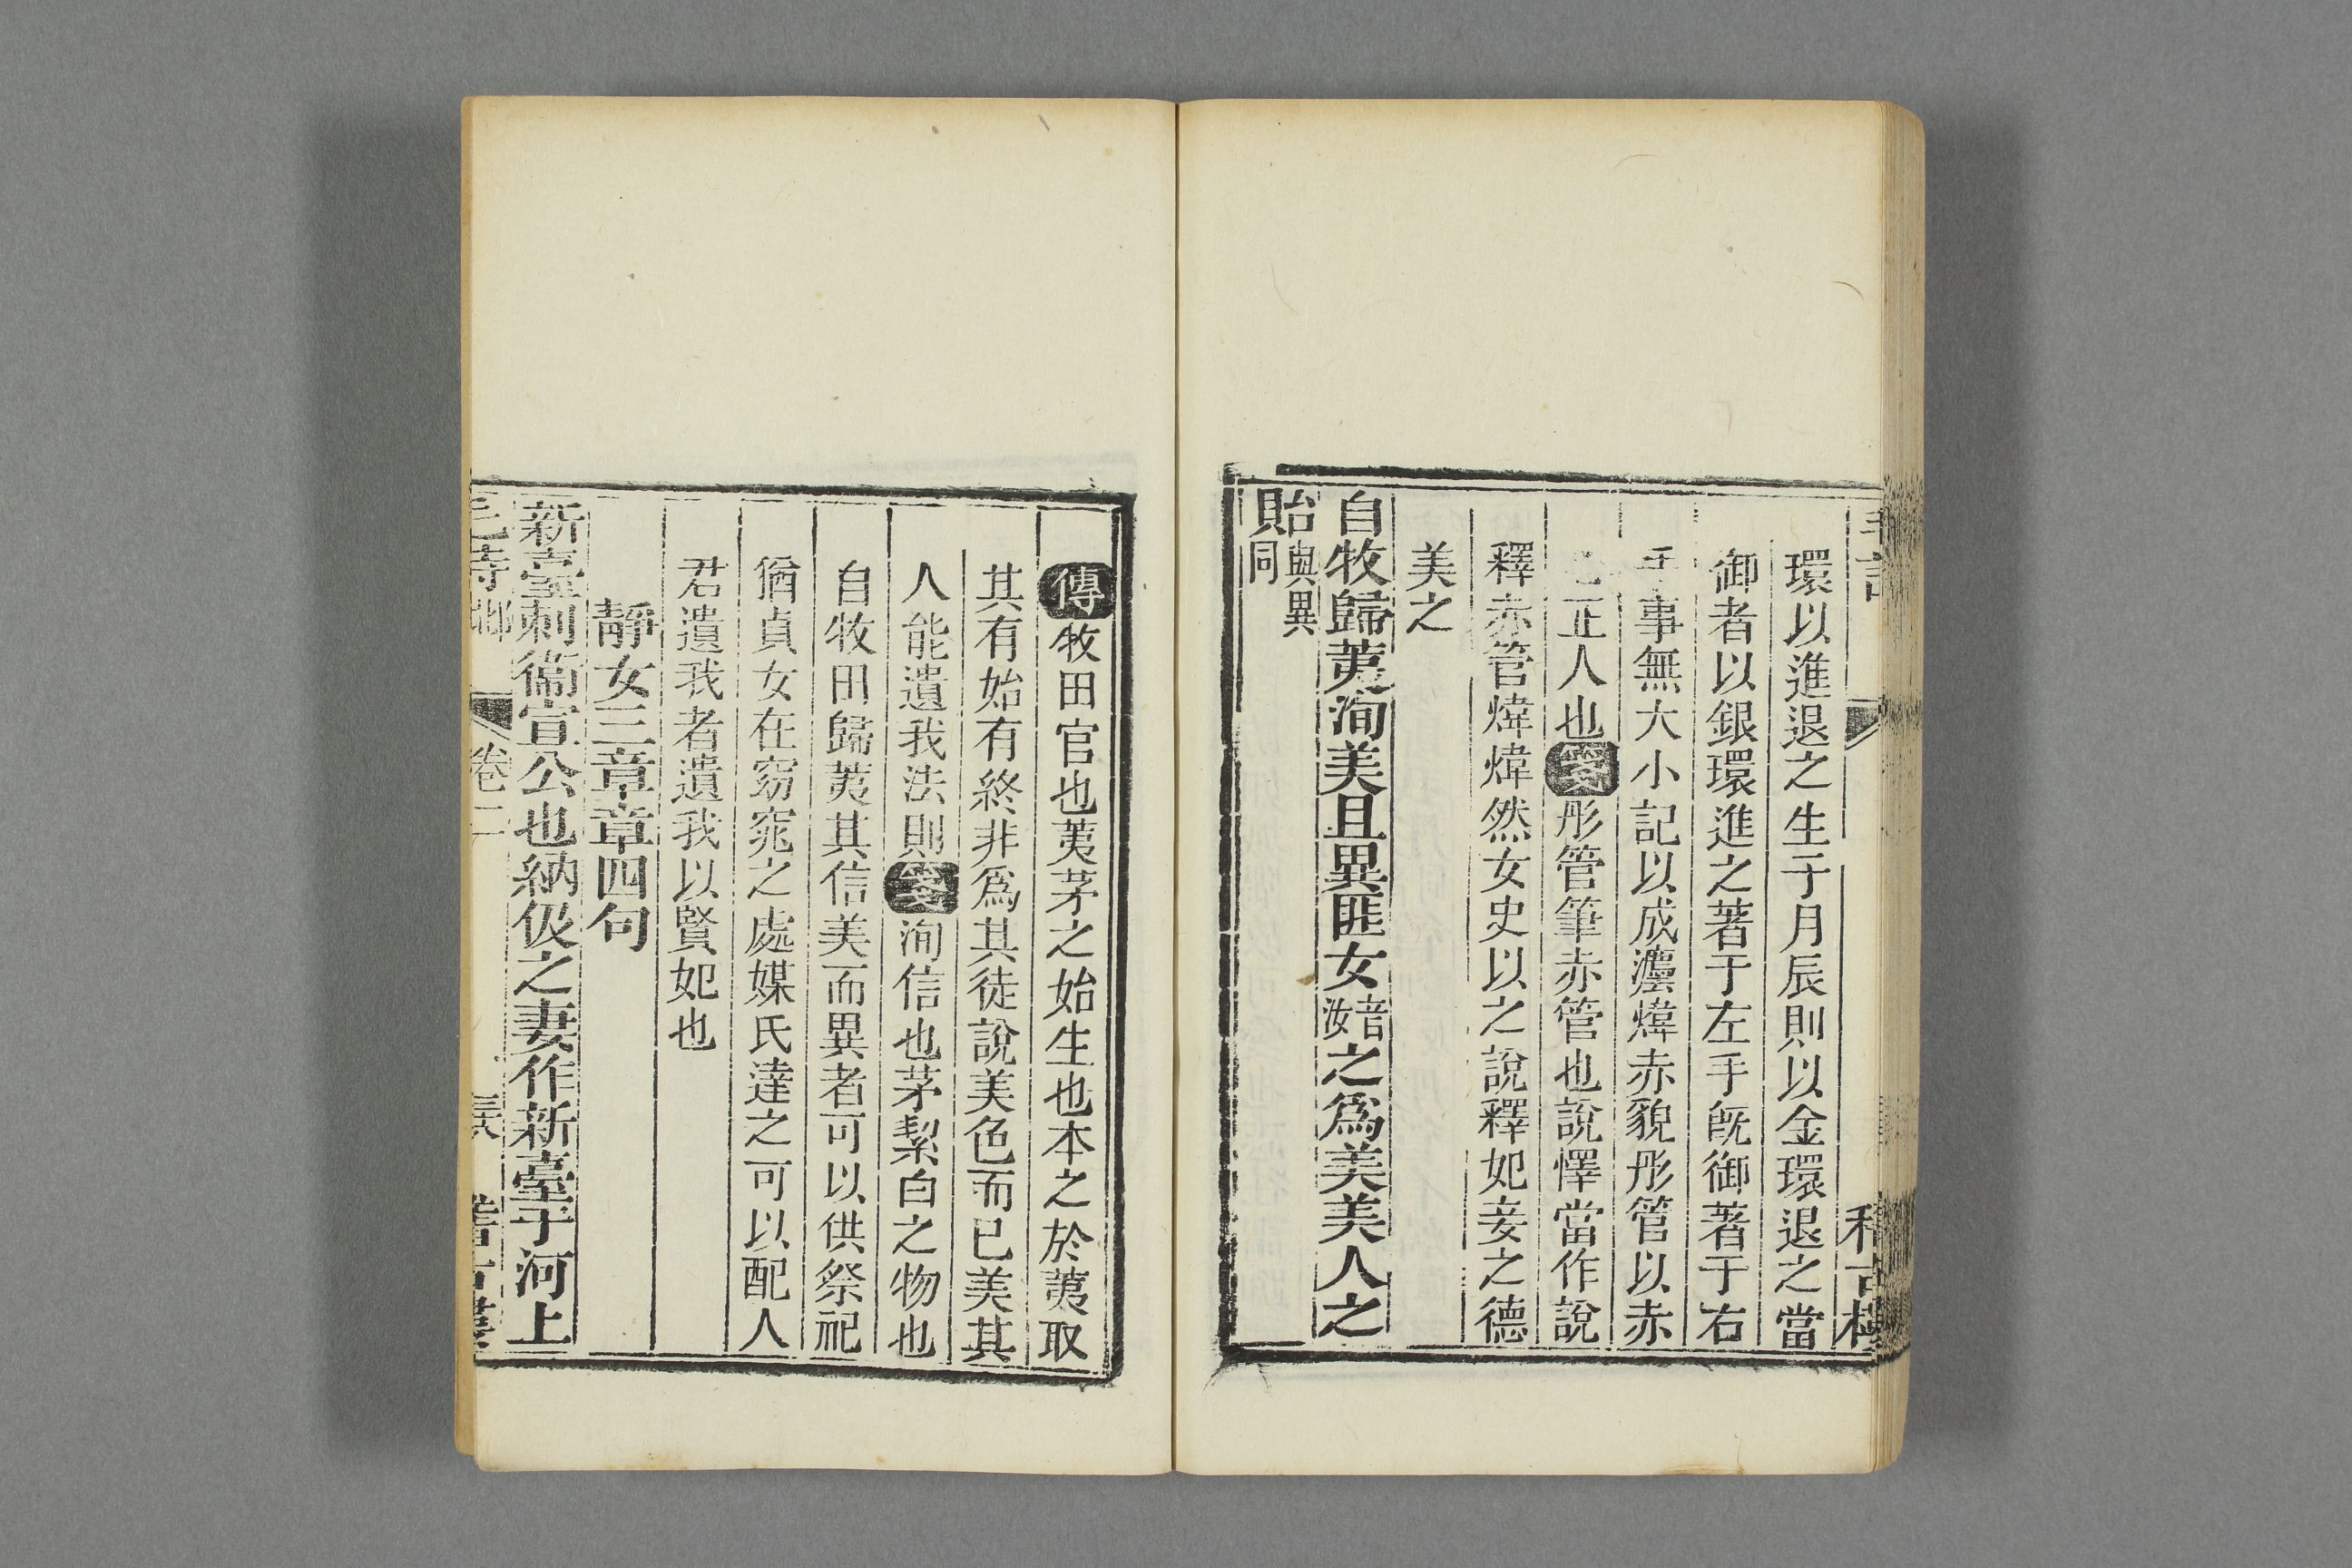 環以進退之生子月辰則以金環退之當
御者以銀環進之著于左手旣御著于右
手事無大小記以成灋煒赤貌彤管以赤
心正人也箋彤管筆赤管也說懌當作說
釋赤管煒煒然女史以之說釋妃妾之德
美之
自牧歸荑洵美且異匪女音汝之爲美美人之
貽與異同
傳牧田官也荑茅之始生也本之於荑取
其有始有終非爲其徒說美色而已美其
人能遺我法則箋洵信也茅絜白之物也
自牧田歸荑其信美而異者可以供祭祀
猶貞女在窈窕之處媒氏達之可以配人
君遺我者遺我以賢妃也
靜女三章章四句
新臺刺衞宣公也納伋之妻作新臺于河上
卷二